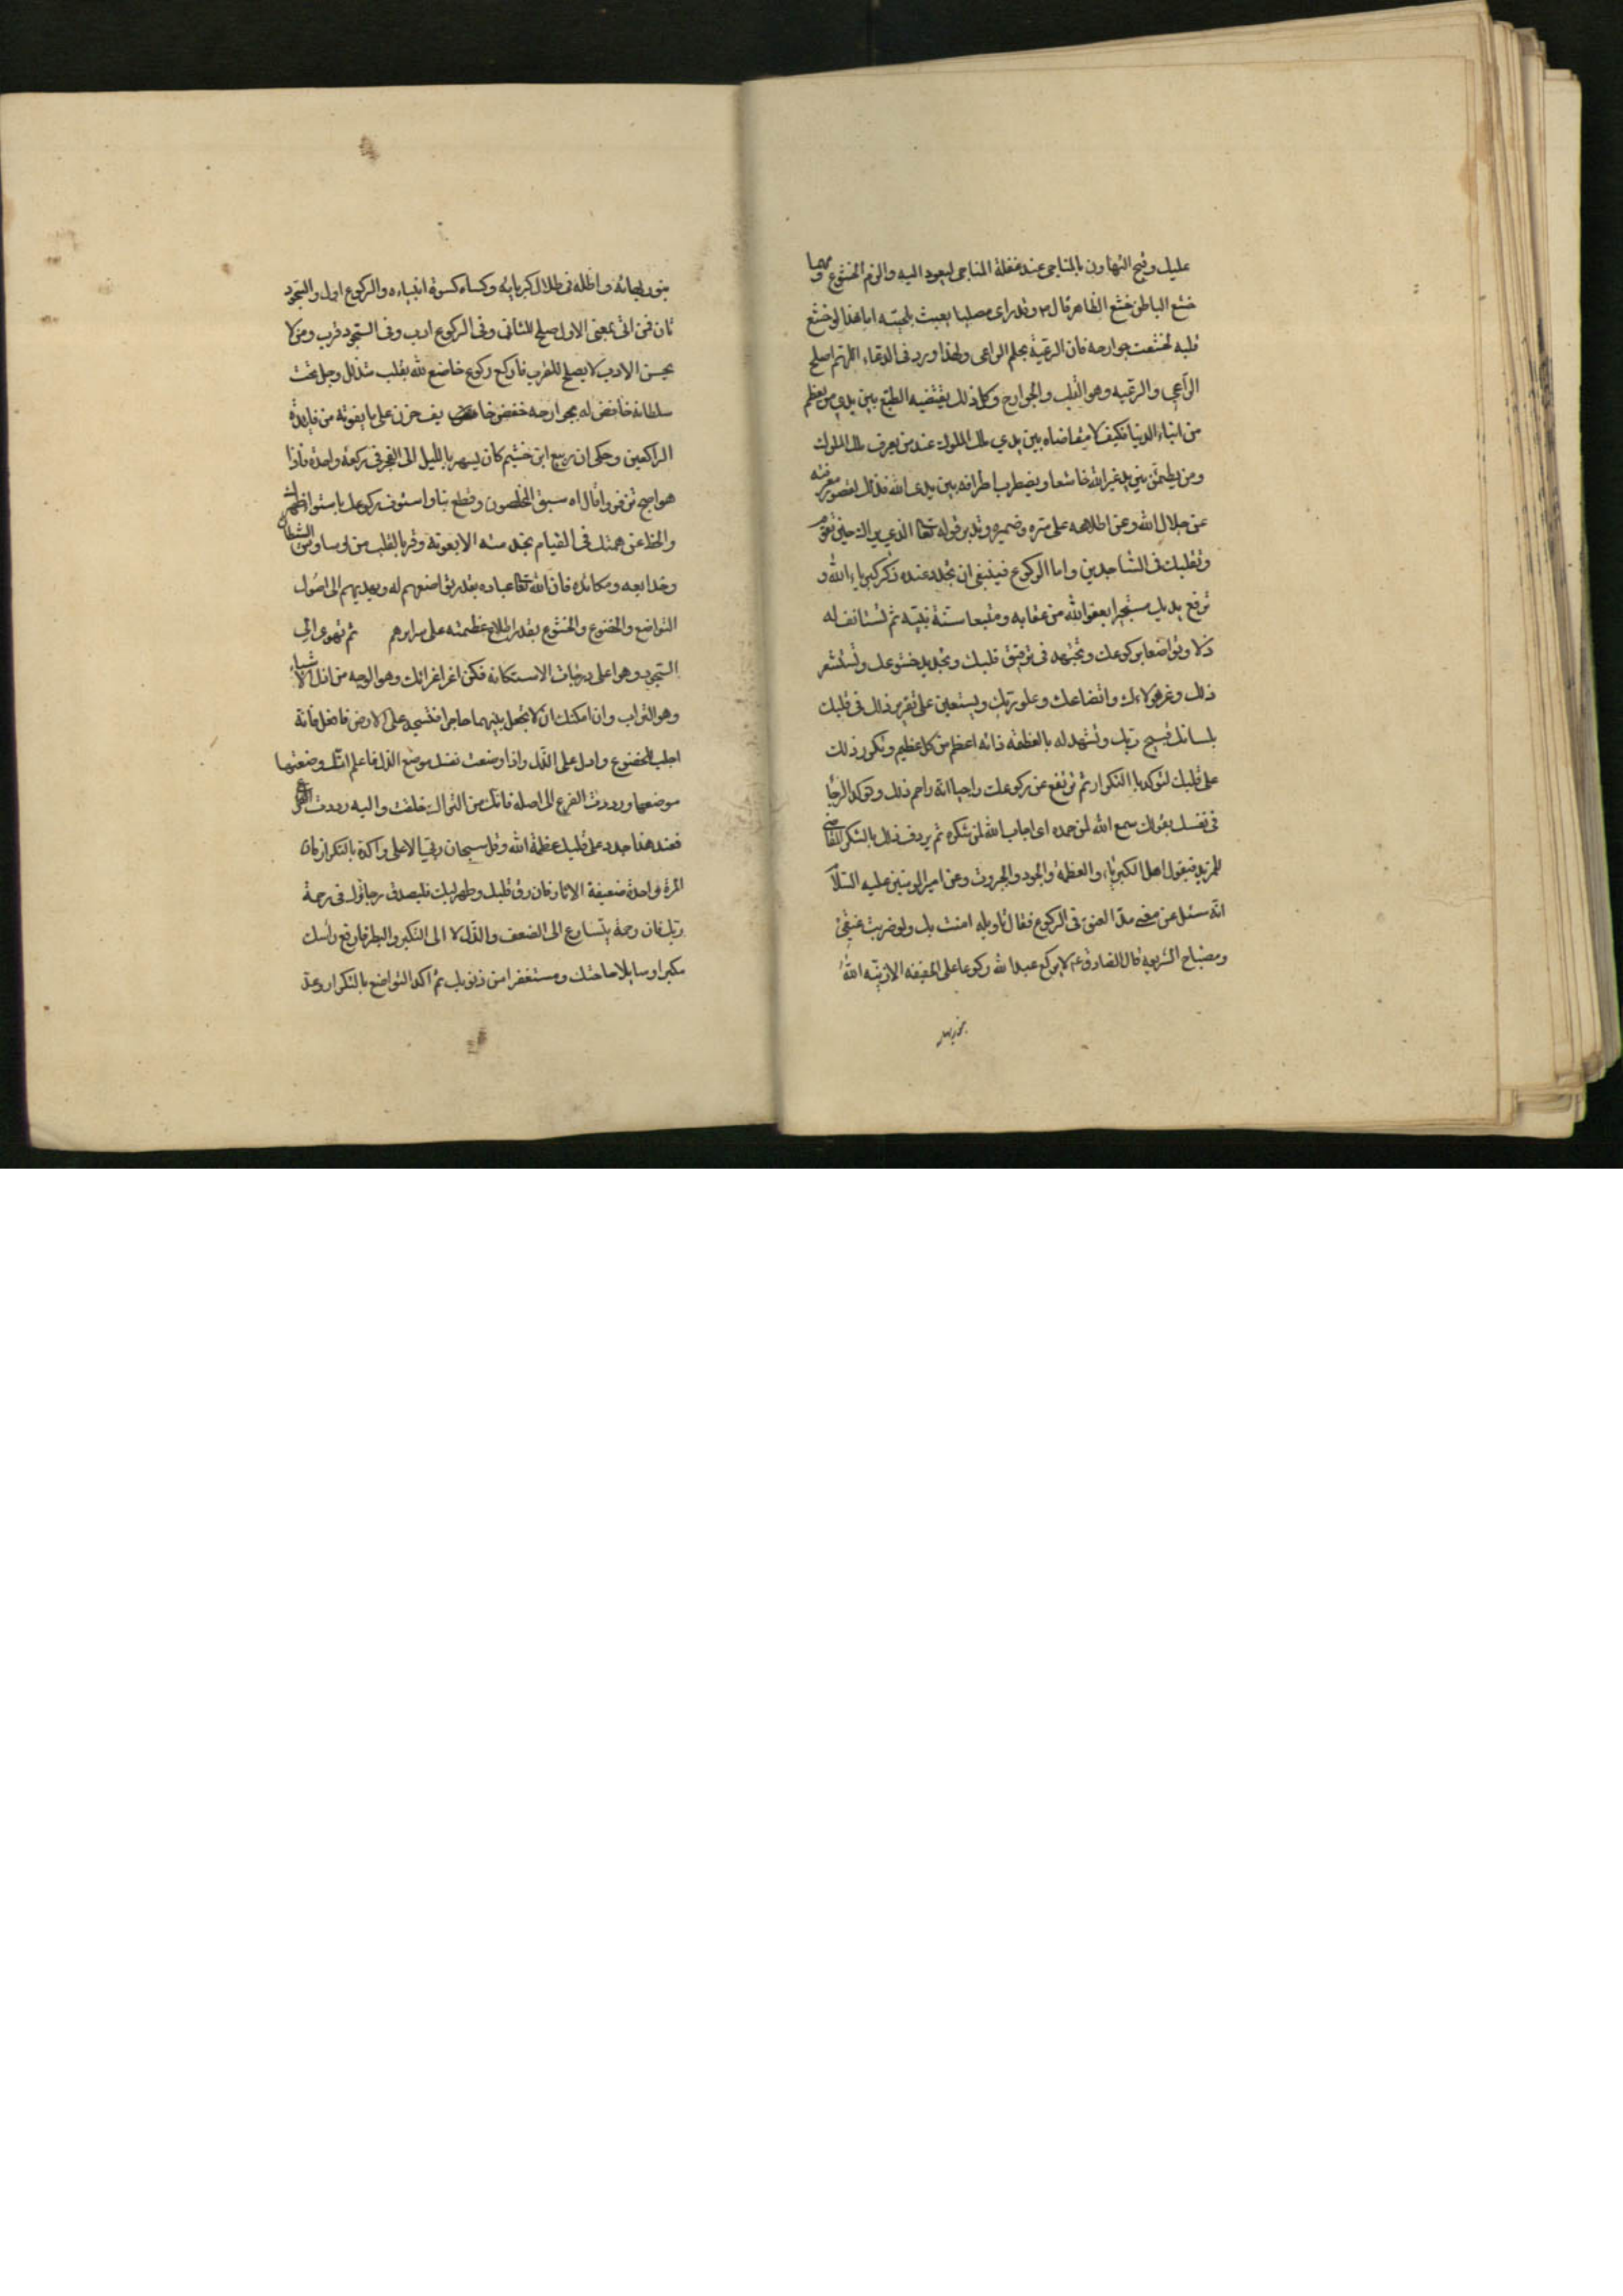 عليك وقبح التهاون بالمناجى عند غفلة المناجى ليعود اليه والزم الخشوع مهما
خشع الباطن خشع الظاهر قال ص وقد راى مصليا يعبث بلحيته اما هذا لو خشع
قلبه لخشعت جوارحه فان الرعية بحكم الراعى ولهذا ورد فى الدعاء اللهم اصلح
الراعى والرعيه وهو القلب والجوارح وكل ذلك يقتضيه الطبع بين يدى من يعظم
من ابناء الدنيا فكيف لا يتقاضاه بين يدي ملك الملوك عند من يعرف ملك الملوك
ومن يطمئن بين يدى غير الله خاشعا ويضطرب اطرافه بين يدى الله فذلك لقصور معرفته
عن جلال الله وعن اطلاعه على سره وضميره وتدبر قوله تعا الذي يراك حين تقوم
وتقلبك فى الساجدين واما الركوع فينبغى ان تجدد عنده ذكر كبرياء الله و
ترفع يديك مستجيرا بعفو الله من عقابه ومتبعا سنة نبيه ثم تستانف له
ذلا وتواضعا بركوعك وتجتهد فى ترقيق قلبك وتجديد خشوعك وتستشعر
ذلك وعز مولاءك واتضاعك وعلو ربك ويستعين على تقرير ذلك فى قلبك
بلسانك فتسبح ربك وتشهد له بالعظمه فانه اعظم من كل عظيم وتكرر ذلك
على قلبك لتوكد باالتكرار ثم ترتفع عن ركوعك راجيا انه راحم ذلك وتوكد الرجا
فى نفسك بقولك سمع الله لمن حمده اى اجاب الله لمن شكره ثم يردف ذلك بالشكر المتقاضى
للمزيد فيقول اهل الكبرياء والعظمة والجود والجبروت وعن امير المومنين عليه السلام
انه سئل عن معنى مد العنق فى الركوع فقال تاويله امنت بك ولو ضربت عنقى
ومصباح الشريعة قال الصادق ع لا يركع عبد الله ركوعا على الحقيقه الا زينه الله
بنور بهائه واظله فى ظلال كبريائه وكساه كسوة اصفيائه والركوع اول والسجود
ثان فمن اتى بمعنى الاول صلح للثانى وفى الركوع ادب وفى السجود قرب ومن لا
يحسن الادب لا يصلح للقرب فاركع ركوع خاضع لله بقلب متذلل وجل تحت
سلطانه خافض له بجوارحه خفض خائف حزن على ما يفوته من فايدة
الراكعين وحكى ان ربيع ابن خثيم كان يسهر بالليل الى الفجر فى ركعة واحدة فاذا
هو اصبح تزفر وقال اه سبق المخلصون وقطع بنا واستوف ركوعك باستواء ظهرك
وانحط عن همتك فى القيام بخدمته الا بعونه وفر بالقلب من وساوس الشيطان
وخدايعه ومكائده فان الله تعا عباده بقدر تواضعهم له ويهديهم الى اصول
التواضع والخضوع والخشوع بقدر اطلاع عظمته على سرايرهم ثم تهوى الى
السجود وهو اعلى درجات الاستكانه فمكن اعز اعضائك وهو الوجه من اذل الاشياء
وهو التراب وان امكنك ان لا تجعل بينهما حاجزا فتسجد على الارض فافعل فانه
اجلب للخضوع وادل على الذل واذا وضعت نفسك موضع الذل فاعلم انك وضعتها
موضعها ورددت الفرع الى اصله فانك من التراب خلقت واليه رددت
فعند هذا جدد على قلبك عظمة الله وقل سبحان ربى الاعلى واكده بالتكرار فان
المرة الواحدة ضعيفة الاثار فان رق قلبك وطهر لبك فليصدق رجاؤك فى رحمة
ربك فان رحمته يتسارع الى الضعف والذل لا الى التكبر والبطر فارفع رأسك
مكبرا وسايلا حاجتك ومستغفرا من ذنوبك ثم اكد التواضع بالتكرار وعد